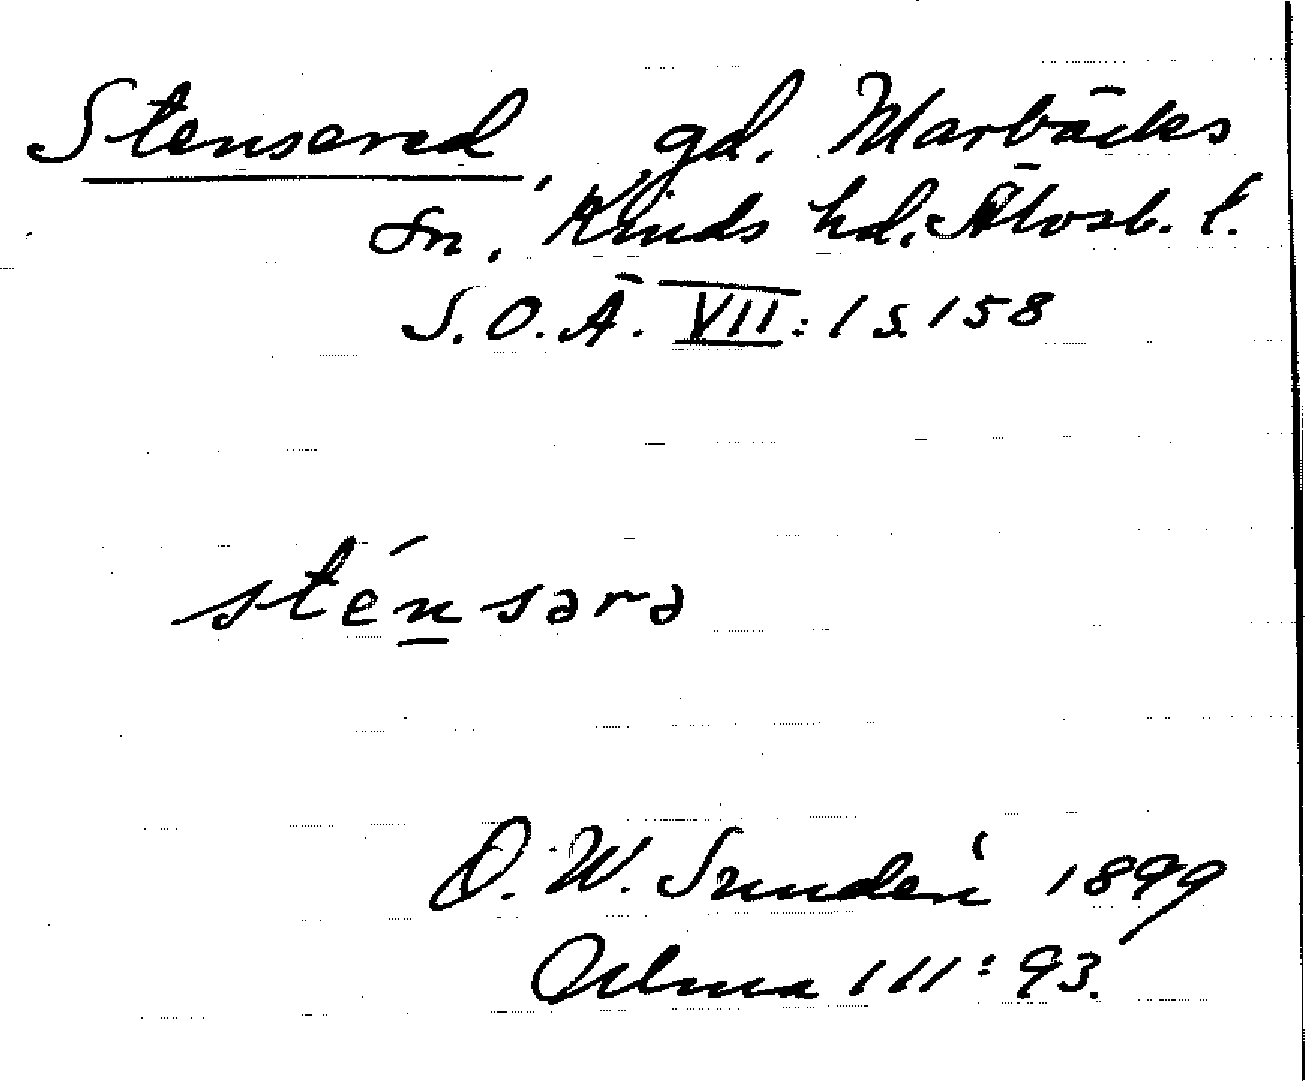 Stensered, gd. Marbäcks
sn, Kinds hd. Älvsb. l.
S.O.Ä. VII: 1 s. 158
sténsərə
D. W. Sundén 1899
Alma 111:93.